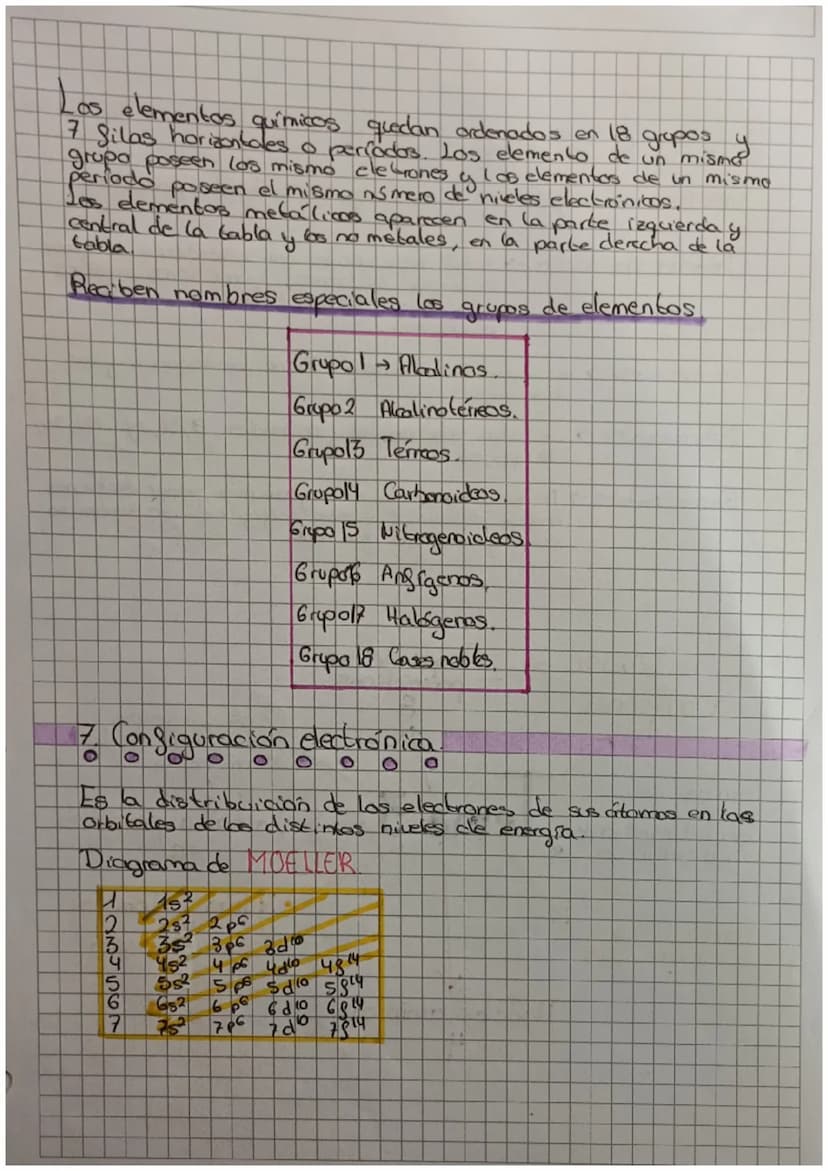 Los elementos químicos quedan ordenados en 18 grupos y
7 filas horizontales o períodos. Los elemento de un mismo
grupo poseen los mismo eletrones y los elementos de un mismo
período poseen el mismo número de niveles electrónicos.
Los elementos metálicos aparecen en la parte izquierda y
central de la tabla y los no metales, en la parte derecha de la
tabla.
Reciben nombres especiales los grupos de elementos.
Grupo 1 → Alcalinos.
Grupo 2 Alcalinotérreos.
Grupo 13 Térreos.
Grupo 14 Carbonoideos.
Grupo 15 Nitrogenoideos.
Grupo 16 Anfígenos.
Grupo 17 Halógenos.
Grupo 18 Gases nobles.
7. Configuración electrónica.
Es la distribuición de los electrones de sus átomos en las
orbitales de los distintos niveles de energía.
Diagrama de MOELLER
1 1s²
2 2s² 2p⁶
3 3s² 3p⁶ 3d¹⁰
4 4s² 4p⁶ 4d¹⁰ 4f¹⁴
5 5s² 5p⁶ 5d¹⁰ 5f¹⁴
6 6s² 6p⁶ 6d¹⁰ 6f¹⁴
7 7s² 7p⁶ 7d¹⁰ 7f¹⁴